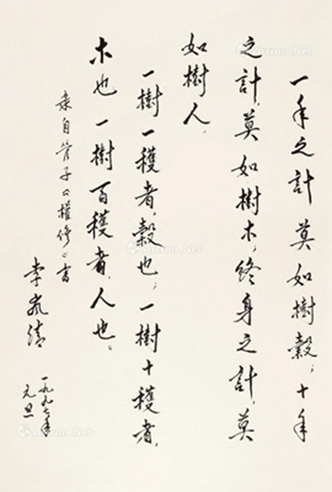 一年之計莫如樹穀；十年
之計，莫如樹木；終身之計，莫
如樹人。
一樹一穫者，穀也；一樹十穫者，
木也一樹百穫者，人也。
录自管子《權修》書
李岚清
一九九七年
元旦